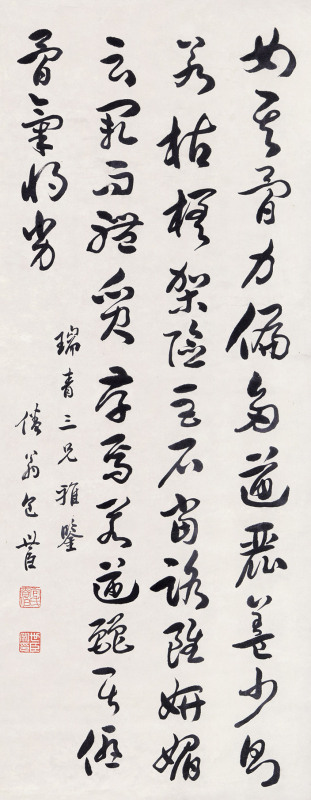 如其骨力偏多遒麗蓋少則
若枯槎架險巨石當路雖妍媚
云闕而體質存焉若遒麗居優
骨氣將劣
瑞青三兄雅鑒
倦翁包世臣